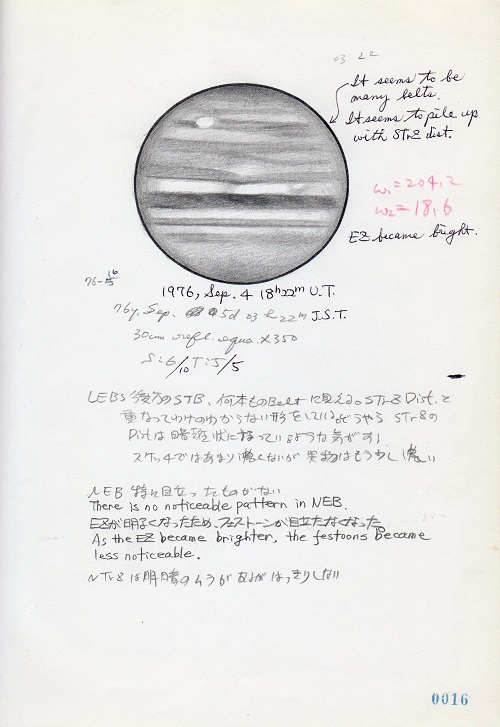 03 22
It seems to be
many belts.
It seems to pile up
with STrZ dist.
ω₁=204.2
ω₂=18.6
EZ became bright.
76-
1976, Sep. 4 18ʰ22ᵐ U.T.
76y. Sep. 5d 03h22m J.S.T.
30cm refl. equa. X350
S:6/10 T:5/5
後方のSTB、何本ものBeltに見える。STrZ Dist.と
重なってわけのわからない形をしている。どうやら STrZの
Dist.は暗斑状になっているような気がする
スケッチではあまり濃くないが実物はもう少し濃い
NEB 特に目立ったものがない
There is no noticeable pattern in NEB.
EZが明るくなったため、フェストーンが目立たなくなった。
As the EZ became brighter, the festoons became
less noticeable.
NTrZは明暗のムラがあるがはっきりしない
0016